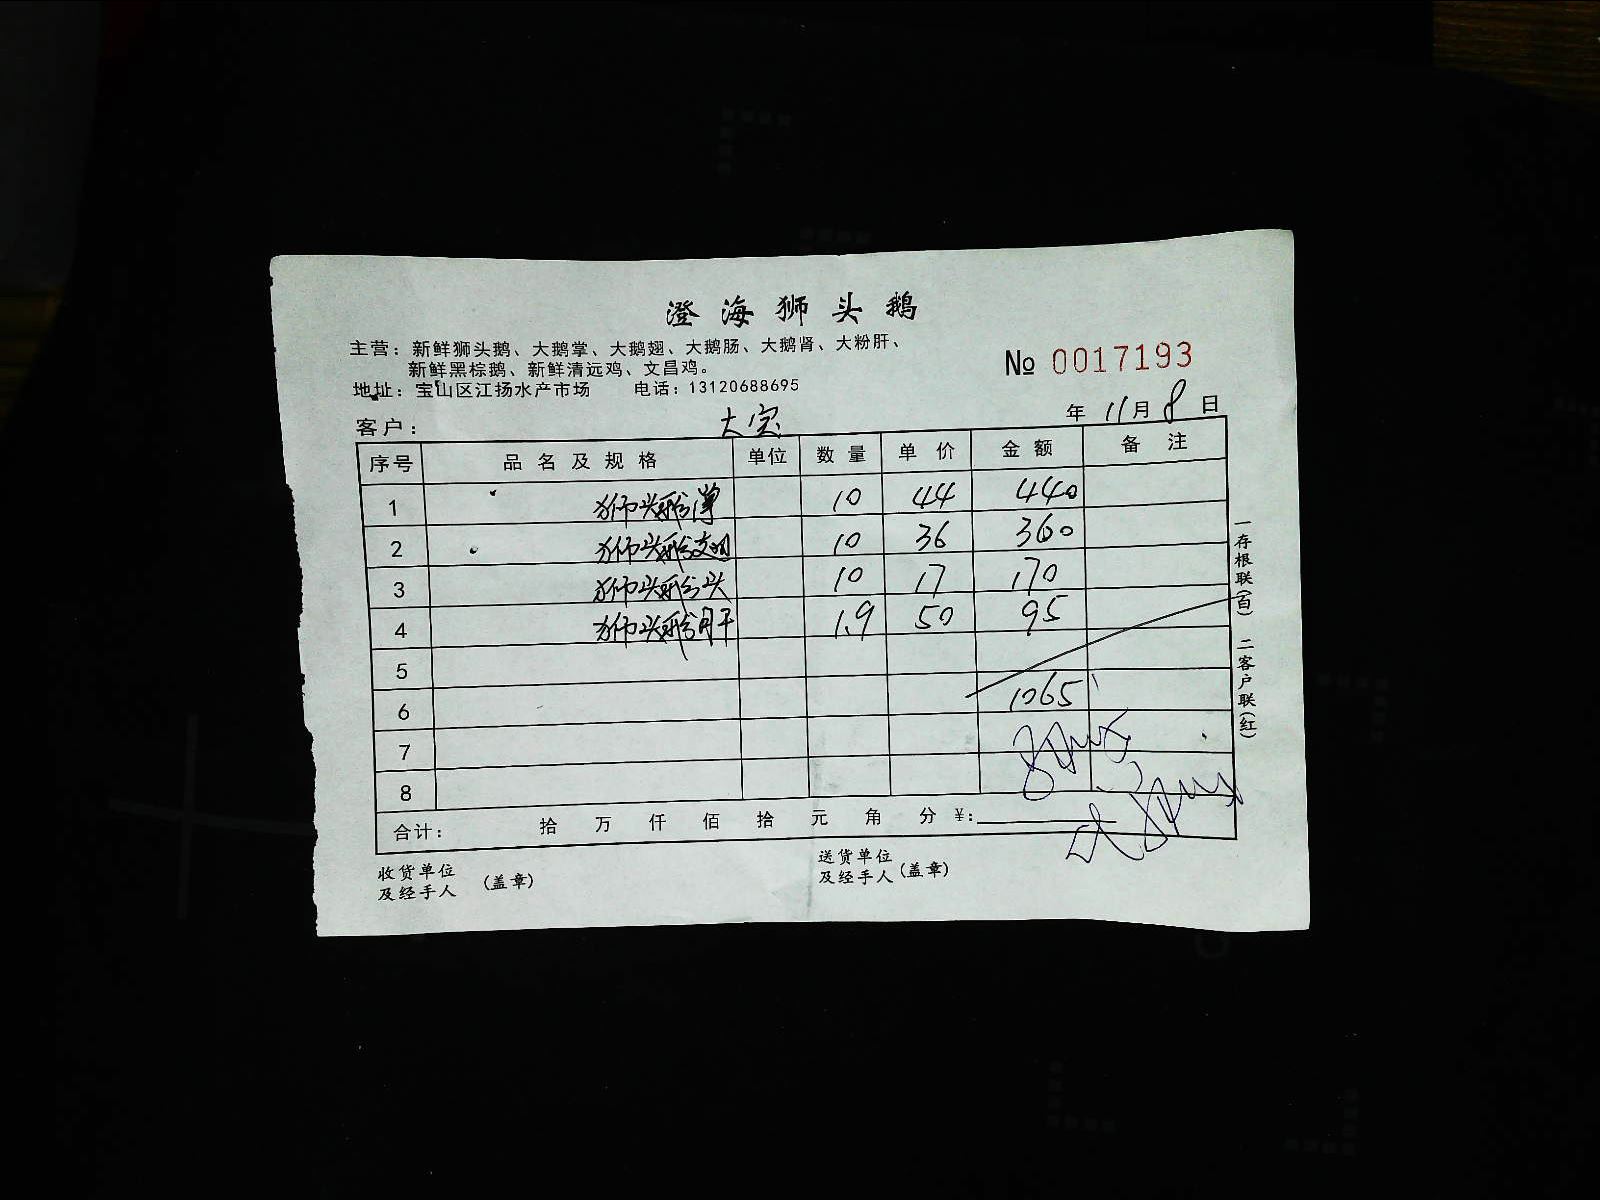 澄海狮头鹅
主营：新鲜狮头鹅、大鹅掌、大鹅翅、大鹅肠、大鹅肾、大粉肝、
新鲜黑棕鹅、新鲜清远鸡、文昌鸡。
№ 0017193
地址：宝山区江扬水产市场 电话：13120688695
客户： 大宝 年 11月 8 日
序号 品名及规格 单位 数量 单价 金额 备注
1 狮头鹅掌 10 44 440
2 狮头鹅翅 10 36 360
3 狮头鹅头 10 17 170
4 狮头鹅肝 1.9 50 95
5
6 1065
7
8
合计： 拾 万 仟 佰 拾 元 角 分 ¥：
收货单位
及经手人 （盖章）
送货单位
及经手人（盖章）
一存根联（白） 二客户联（红）